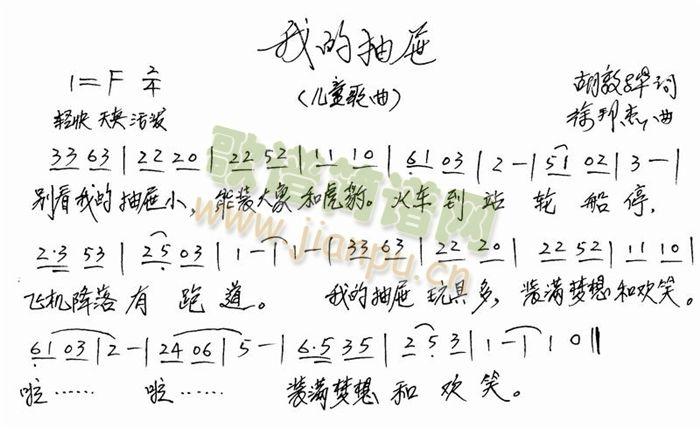 我的抽屉
(儿童歌曲)
1=F 2/4
胡敦骅词
轻快 天真 活泼
徐邦杰曲
33 63 | 22 20 | 22 52 | 11 10 | 61 03 | 2 - | 51 02 | 3 - |
别看我的抽屉小，能装大象和虎豹。火车到站轮船停，
2·3 53 | 25 03 | 1 - | 1 - | 33 63 | 22 20 | 22 52 | 11 10 |
飞机降落有跑道。我的抽屉玩具多，装满梦想和欢笑。
61 03 | 2 - | 24 06 | 5 - | 6·5 35 | 2 5 3 | 1 - | 1 0 ‖
啦…… 啦…… 装满梦想和欢笑。
歌谱简谱网
www.jianpu.cn